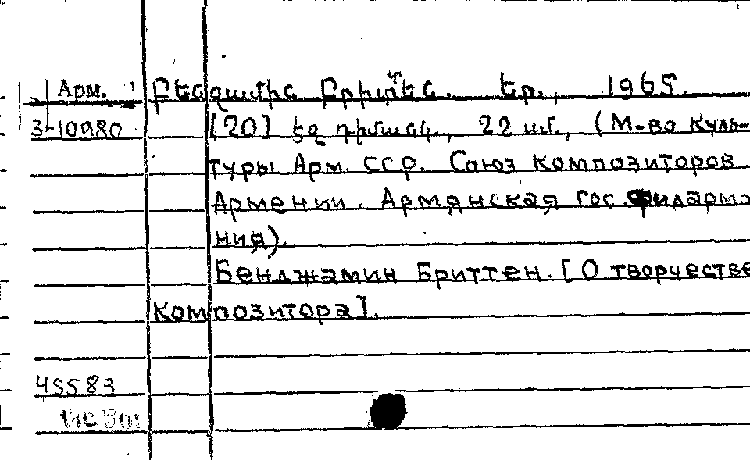 Арм. Բենջամին Բրիտտեն. Եր., 1965.
3-10980 [20] էջ դիմանկ., 22 սմ., (М-во куль-
туры Арм. ССР. Союз композиторов
Армении. Армянская гос. филармо
ния).
Бенджамин Бриттен. [О творчестве
композитора].
45583